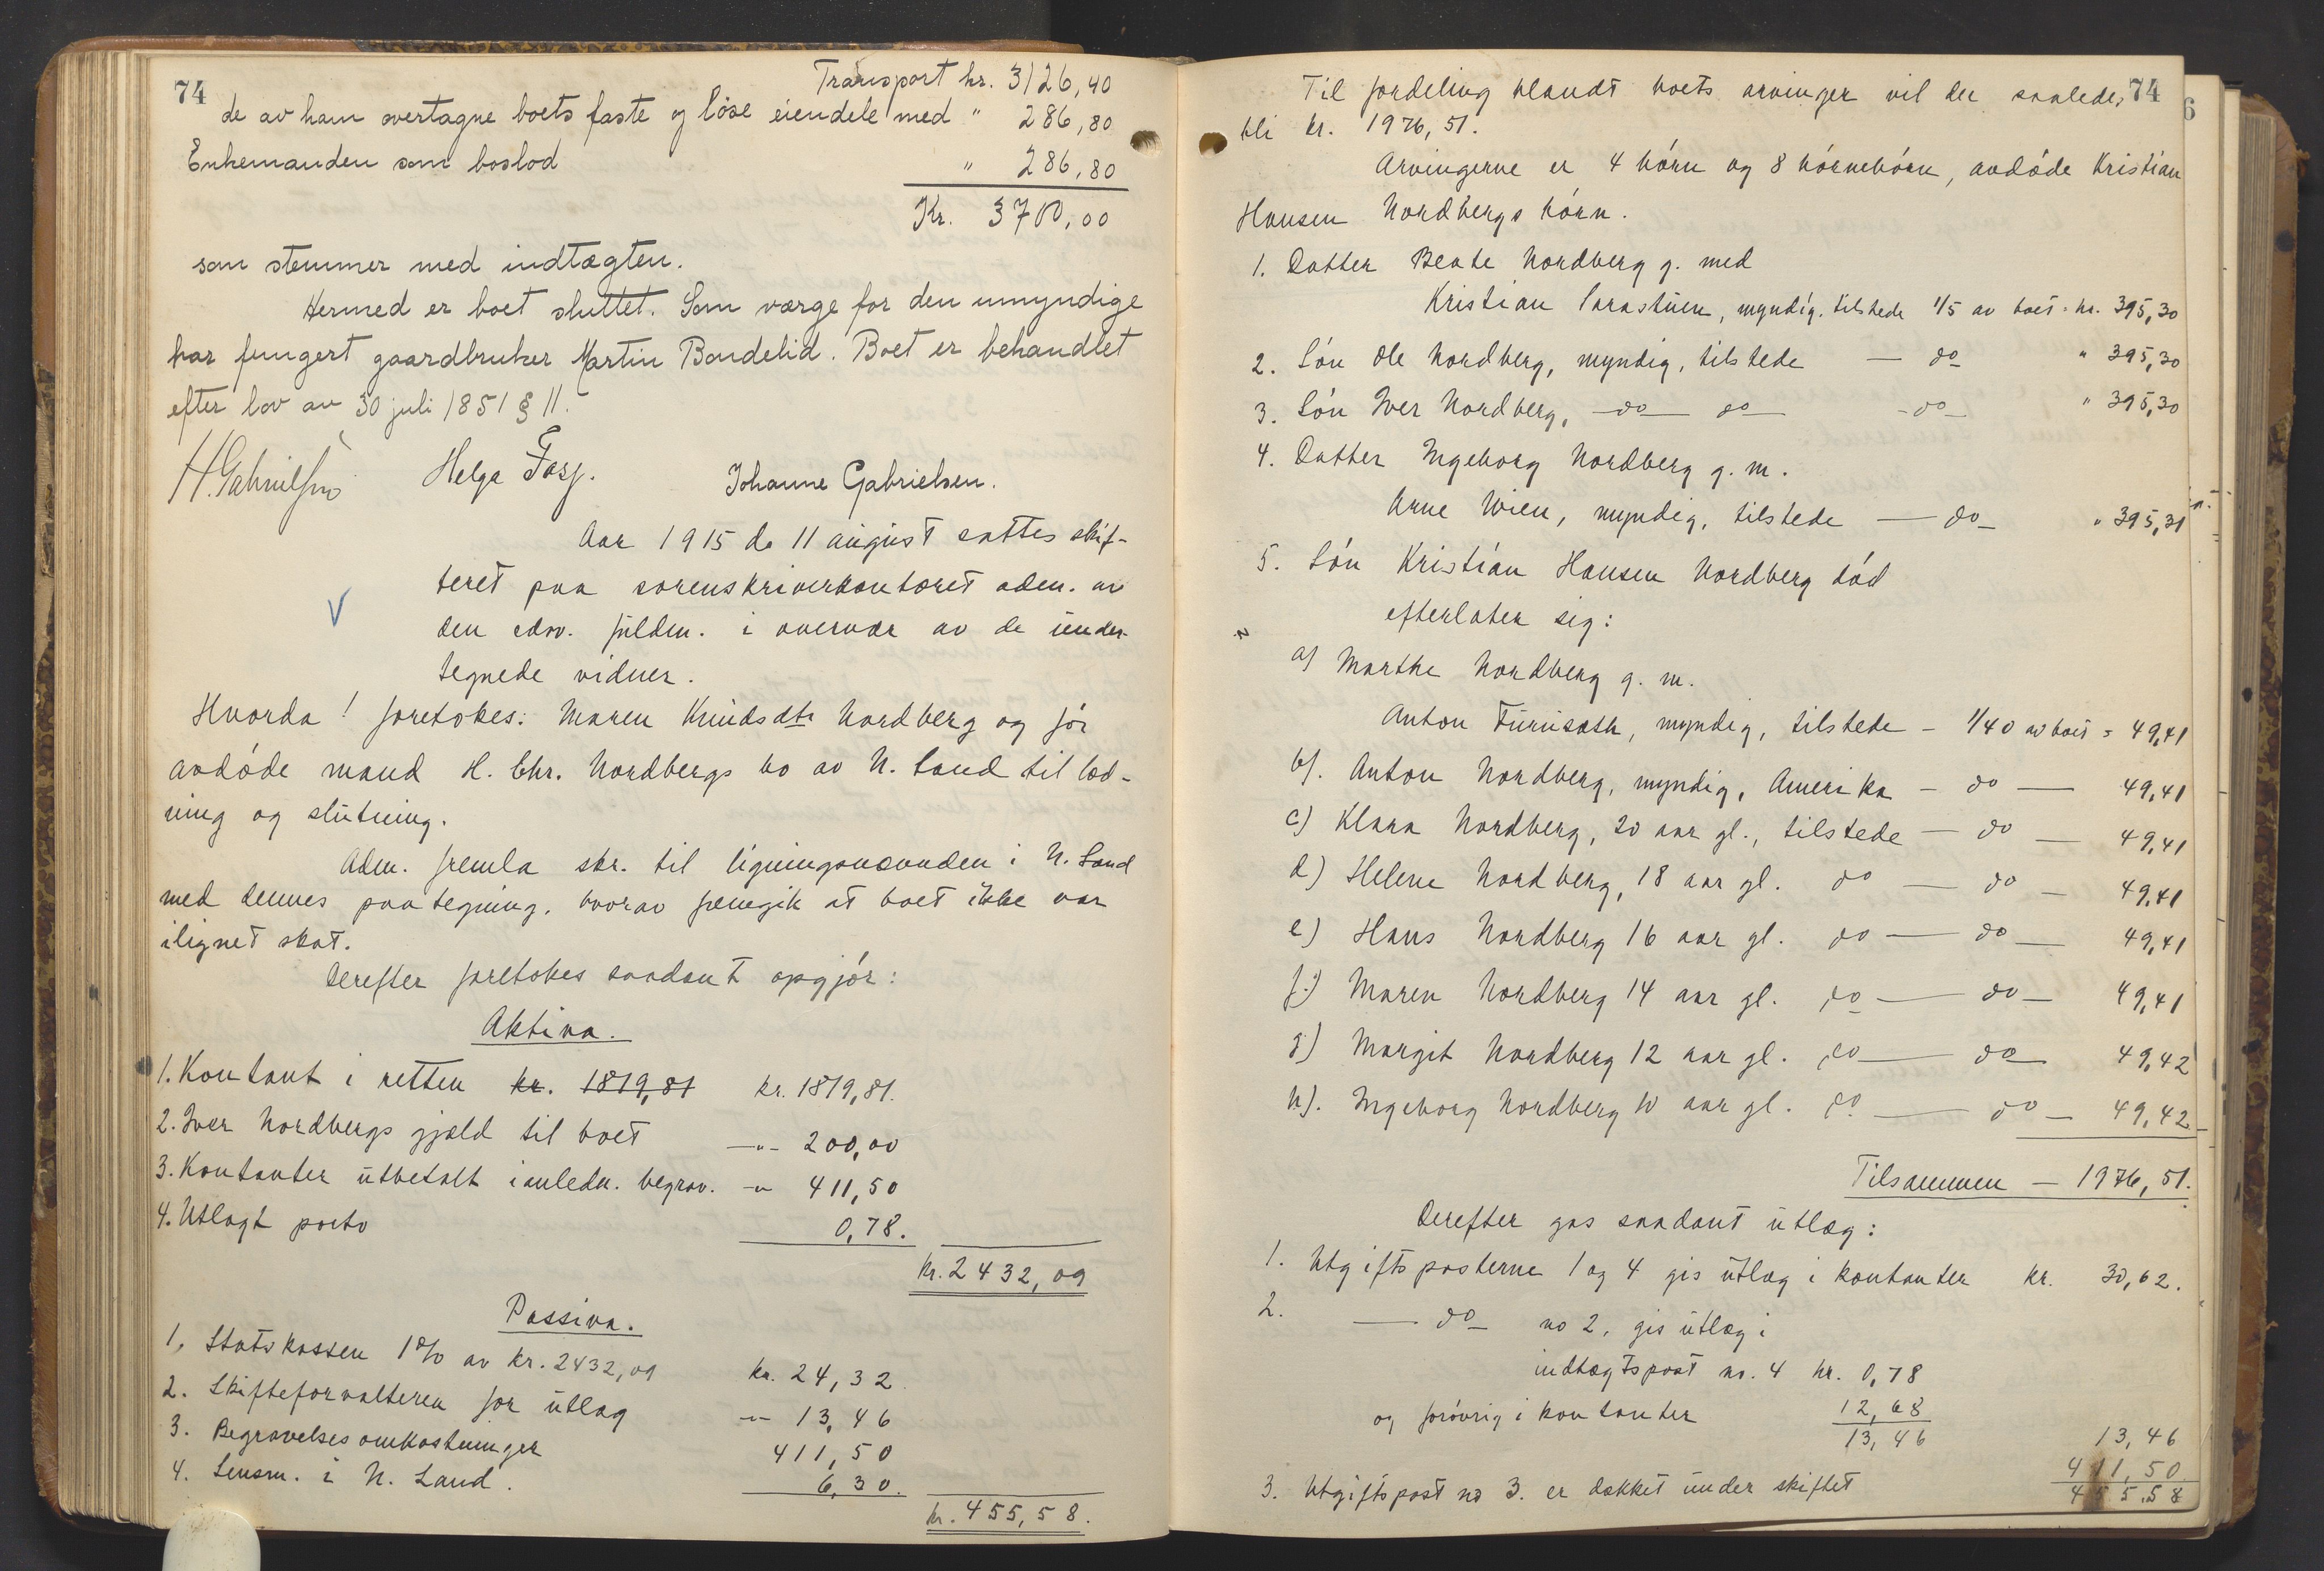 74
Transport kr. 3126,40
de av ham overtagne boets faste og løse eiendele med " 286,80
Enkemanden som boslod " 286,80
Kr. 3700,00
som stemmer med indtægten.
Hermed er boet sluttet. Som værge for den umyndige
har fungert gaardbruker Martin Bondelid. Boet er behandlet
efter lov av 30 juli 1851 § 11.
H. Gabrielsen Helga Fasj. Johanne Gabrielsen.
Aar 1915 d. 11 august sattes skif-
teret paa sorenskriverkontoret adm. av
den edsv. fuldm. i overvær av de under-
tegnede vidner.
V
Hvorda! foretokes: Maren Knudsdtr Nordberg og før
avdøde mand H. Chr. Nordbergs bo av N. Land til lod-
ning og slutning.
Adm. fremla skr. til ligningsnævnden i N. Land
med dennes paategning, hvorav fremgik at boet ikke var
ilignet skat.
Derefter foretokes saadant opgjør:
Aktiva.
1. Kontant i retten kr. 1819,81 kr. 1819,81.
2. Iver Nordbergs gjæld til boet -"- 200,00
3. Kontanter utbetalt i anledn. begrav. -" 411,50
4. Utlagt porto 0,78.
kr. 2432,09
Passiva.
1. Statskassen 1% av kr. 2432,09 kr. 24,32
2. Skifteforvalteren for utlæg -"- 13,46
3. Begravelsesomkostninger 411,50
4. Lensm. i N. Land. 6,30.
kr. 455,58.
74
6
Til fordeling blandt boets arvinger vil der saaledes
bli kr. 1976,51.
Arvingerne er 4 børn og 8 børnebørn, avdøde Kristian
Hansen Nordbergs børn.
1. Datter Beate Nordberg g. med
Kristian Larastuen, myndig, tilstede 1/5 av boet = kr. 395,30
2. Søn Ole Nordberg, myndig, tilstede — do " 395,30
3. Søn Iver Nordberg, — do — do — - do - " 395,30
4. Datter Ingeborg Nordberg g. m.
Arne Wien, myndig, tilstede — do - " 395,31
5. Søn Kristian Hansen Nordberg død
efterlater sig:
a) Marthe Nordberg g. m.
Anton Furuseth, myndig, tilstede - 1/40 av boet = 49,41
b). Anton Nordberg, myndig, Amerika - do — 49,41
c) Klara Nordberg, 20 aar gl., tilstede — do — 49,41
d) Helene Nordberg, 18 aar gl. do — do — 49,41
e) Hans Nordberg 16 aar gl. do — do — 49,41
f.) Maren Nordberg 14 aar gl. do — do — 49,41
g) Margit Nordberg 12 aar gl. do — do 49,42
h). Ingeborg Nordberg 10 aar gl. do — do — 49,42
Tilsammen — 1976,51.
Derefter gas saadant utlæg:
1. Utgiftsposterne 1 og 4 gis utlæg i kontanter kr. 30,62.
2. — do — no 2, gis utlæg i
indtægtspost no. 4 kr. 0,78
og forøvrig i kontanter 12,68
13,46 13,46
3. Utgiftspost no 3. er dækket under skiftet 411,50
455,58